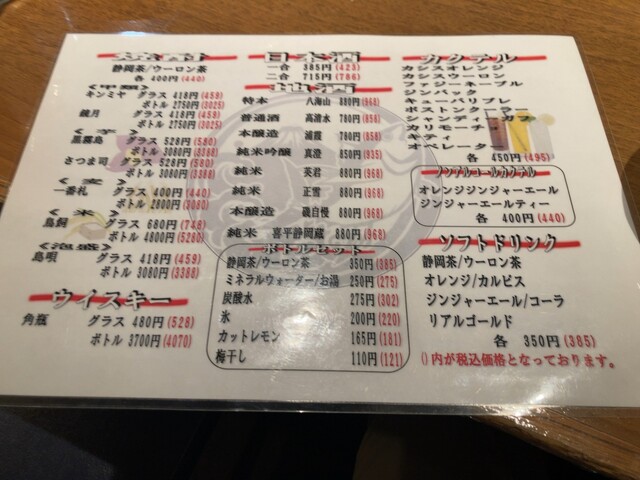 焼酎
静岡茶/ウーロン茶
各 400円(440)
<甲類>
キンミヤ グラス 418円(459)
ボトル 2750円(3025)
鏡月 グラス 418円(459)
ボトル 2750円(3025)
<芋>
黒霧島 グラス 528円(580)
ボトル 3080円(3388)
さつま司 グラス 528円(580)
ボトル 3080円(3388)
<麦>
一番札 グラス 400円(440)
ボトル 2800円(3080)
<米>
鳥飼 グラス 680円(748)
ボトル 4800円(5280)
<泡盛>
島唄 グラス 418円(459)
ボトル 3080円(3388)
ウイスキー
角瓶 グラス 480円(528)
ボトル 3700円(4070)
日本酒
一合 385円(423)
二合 715円(786)
地酒
特本 八海山 880円(968)
普通酒 高清水 780円(858)
本醸造 浦霞 780円(858)
純米吟醸 真澄 850円(935)
純米 英君 880円(968)
純米 正雪 880円(968)
本醸造 磯自慢 880円(968)
純米 喜平静岡蔵 880円(968)
ボトルセット
静岡茶/ウーロン茶 350円(385)
ミネラルウォーター/お湯 250円(275)
炭酸水 275円(302)
氷 200円(220)
カットレモン 165円(181)
梅干し 110円(121)
カクテル
カシスオレンジ
カシスウーロン
ファジーネーブル
ジンバック
キューバリブレ
ボストンクーラー
シャンディーガフ
カリモーチョ
キティ
オペレーター
各 450円(495)
ノンアルコールカクテル
オレンジジンジャーエール
ジンジャーエールティー
各 400円(440)
ソフトドリンク
静岡茶/ウーロン茶
オレンジ/カルピス
ジンジャーエール/コーラ
リアルゴールド
各 350円(385)
()内が税込価格となっております。